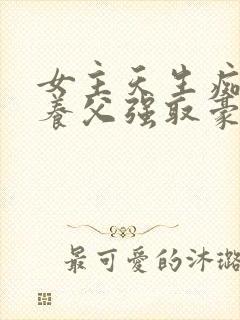 女主天生痴
养父强取豪
最可爱的沐璐